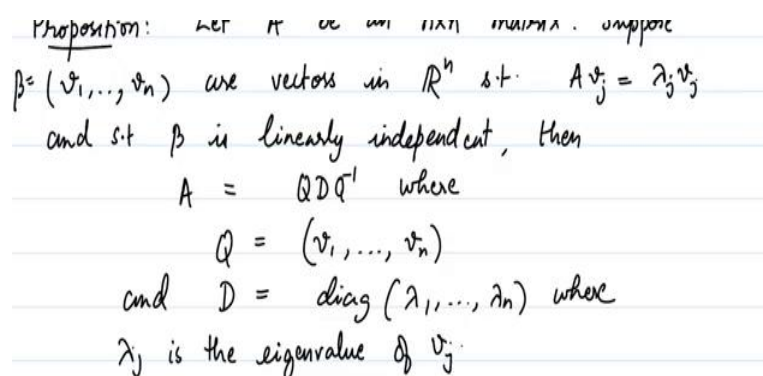 Proposition: Let A be an nxn matrix. Suppose
β = (v₁,..,vₙ) are vectors in ℝⁿ s.t. Avⱼ = λⱼvⱼ
and s.t β is linearly independent, then
A = QDQ⁻¹ where
Q = (v₁,...,vₙ)
and D = diag (λ₁,..., λₙ) where
λⱼ is the eigenvalue of vⱼ.